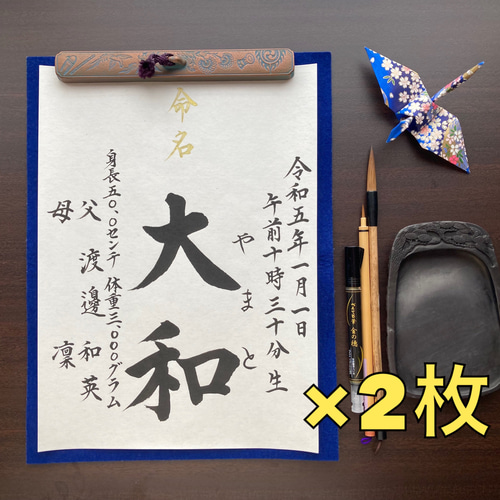 命名
令和五年一月一日
午前十時三十分生
やまと
大和
身長五〇、〇センチ 体重三、〇〇〇グラム
父 渡邉 和英
母 凛
×2枚